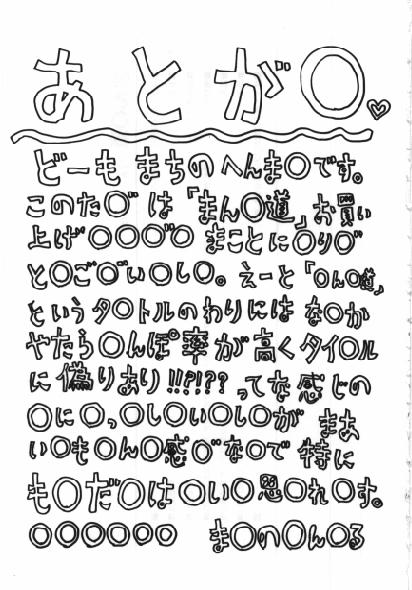 あとが○
どーも まちの へんま○です。
このた○゛は「まん○道」お買い
上げ○○○゛○ まことに○り○゛
と○ご○゛い○し○。 えーと「○ん○道」
というタ○トルのわりには な○か
やたら○んぽ率が高くタイ○ル
に偽りあり!!?!?? ってな感じの
○に○っ○し○い○し○が まあ
い○も○ん○感○゛な○で 特に
も○だ○は○い○思○れ○す。
○○○○○○ ま○の○ん○る